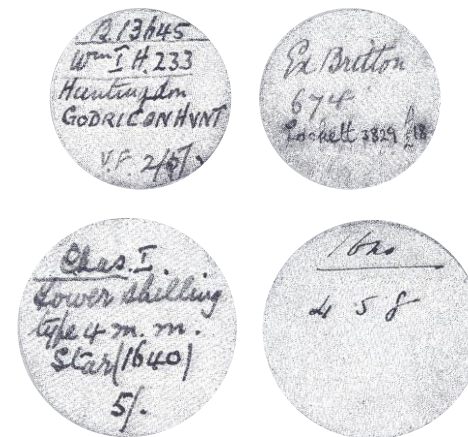 B.13645
Wm I H.233
Huntingdon
GODRIC ON HVNT
V.F. 2/5/
Ex Britton
674
Lockett 3829
Chas. I.
Tower shilling
type 4 m.m.
Star (1640)
5/.
4 5 8